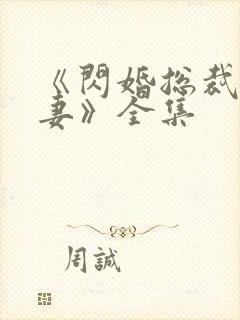 《閃婚总裁
妻》全集
周誠